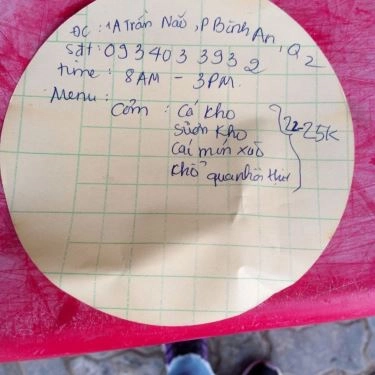 ĐC : 1A Trần Não , P Bình An , Q 2
Sđt : 093 403 393 2
time : 8AM - 3PM.
Menu :
Cơm : Cá kho
Sườn kho
Cải mín xào
Khổ qua nhồi thịt
22-25K